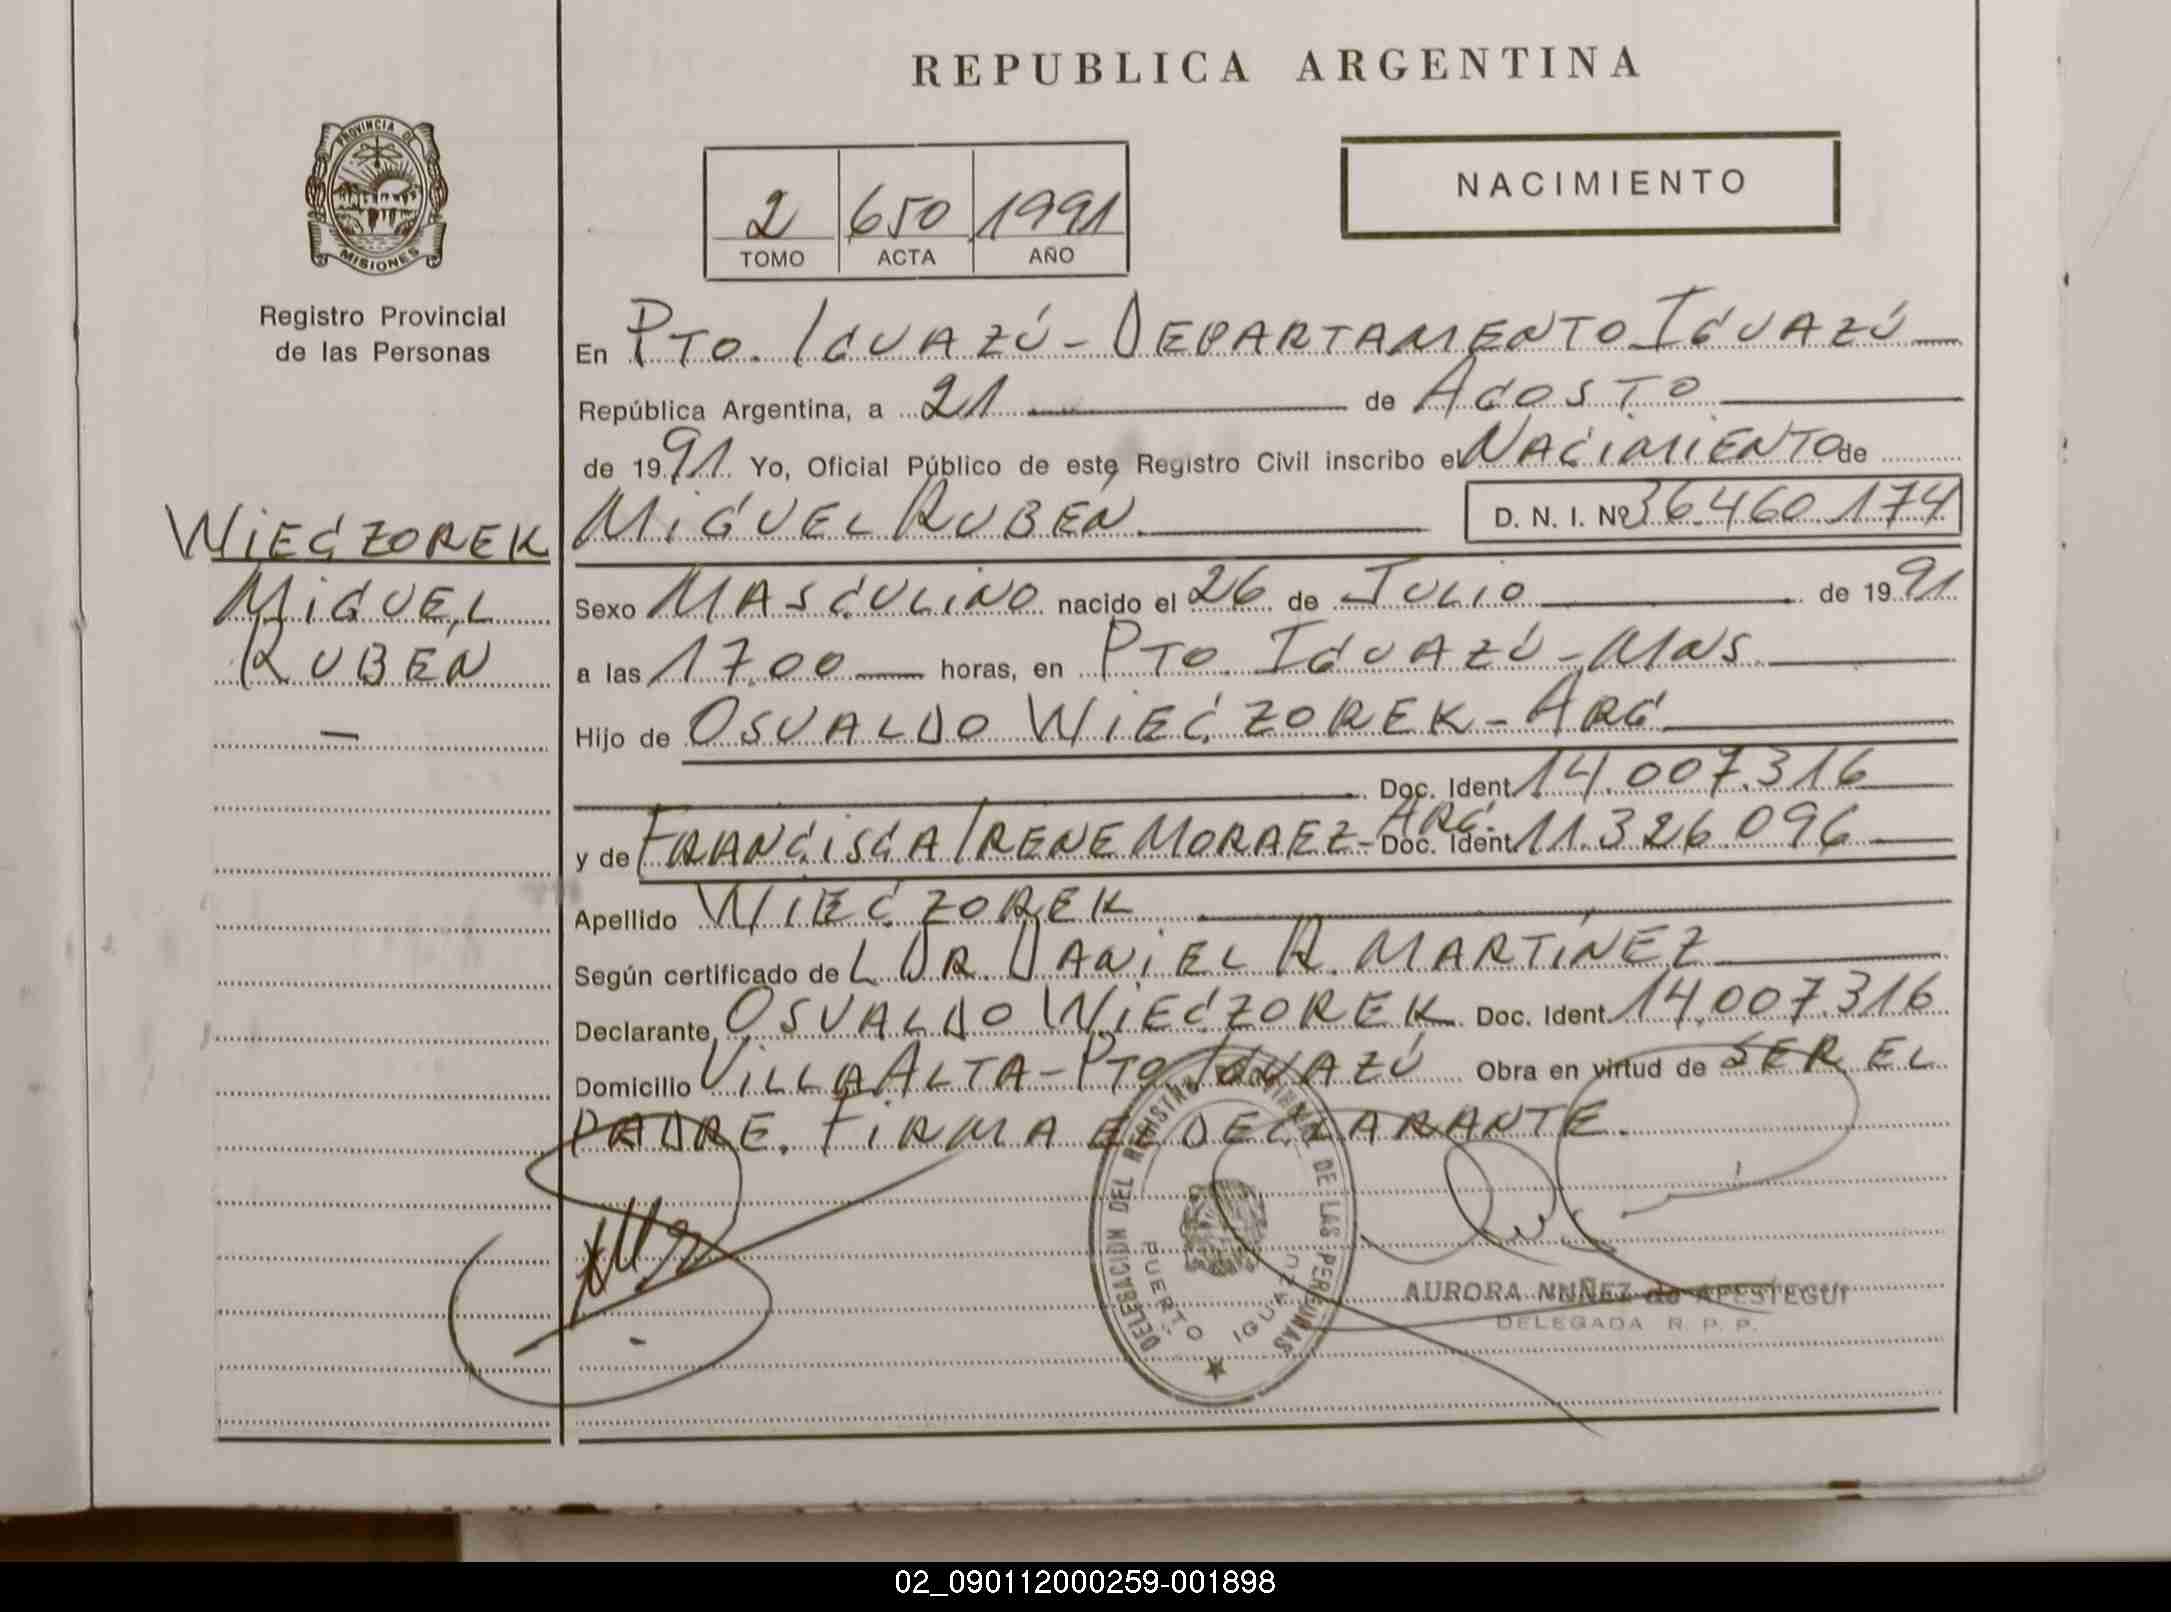 REPUBLICA ARGENTINA
PROVINCIA DE
MISIONES
Registro Provincial
de las Personas
2 650 1991
TOMO ACTA AÑO
NACIMIENTO
En PTO. IGUAZÚ - DEPARTAMENTO IGUAZÚ
República Argentina, a 21 de AGOSTO
de 1991. Yo, Oficial Público de este Registro Civil inscribo el NACIMIENTO de
WIECZOREK
MIGUEL
RUBEN
MIGUEL RUBEN D. N. I. Nº 36.460.174
Sexo MASCULINO nacido el 26 de JULIO de 1991
a las 17.00 horas, en PTO. IGUAZÚ - MNS.
Hijo de OSVALDO WIECZOREK - ARG
Doc. Ident. 14.007.316
y de FRANCISCA IRENE MORAEZ - ARG. Doc. Ident. 11.326.096
Apellido WIECZOREK
Según certificado de L DR. DANIEL R. MARTINEZ
Declarante OSVALDO WIECZOREK Doc. Ident. 14.007.316
Domicilio VILLA ALTA - PTO. IGUAZÚ Obra en virtud de SER EL
PADRE. FIRMA EL DECLARANTE.
DELEGACION DEL REGISTRO PROVINCIAL DE LAS PERSONAS
PUERTO IGUAZU
AURORA NUÑEZ de APESTEGUI
DELEGADA R. P. P.
02_090112000259-001898